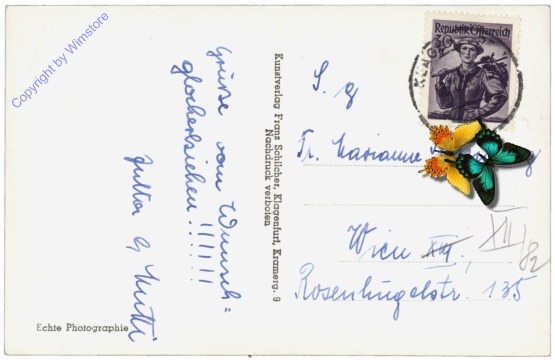 Copyright by Wimstore
Grüße vom Wunsch=
glöckerlziehen!!!!!!
Jutta & Mutti
Echte Photographie
Kunstverlag Franz Schilcher, Klagenfurt, Kramerg. 9
Nachdruck verboten
30
Republik Österreich
KLAG
S. g
Fr. Marianne
Wien XIII,
XII/82
Rosenhügelstr. 135